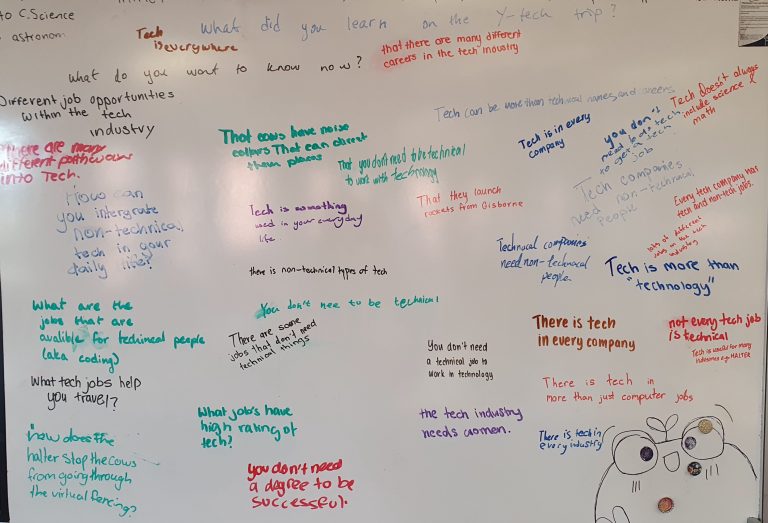 to C.Science
astronom
What did you learn on the Y-tech trip?
Tech
is everywhere
that there are many different
careers in the tech industry
what do you want to know now?
Different job opportunities
within the tech
industry
Tech can be more than technical names and careers
Tech doesn't always
include science &
math
That cows have noise
collars That can direct
them places
Tech is in every
company
you don't
need
tech
to get a tech
job
There are many
different pathways
into Tech.
That you don't need to be technical
to work with technology
Tech companies
need non-technical
people
How can
you intergrate
non-technical
tech in your
daily life?
Tech is something
used in your everyday
life.
That they launch
rockets from Gisborne
Every tech company has
tech and non-tech jobs.
lots of different
jobs in the tech
industry
Technical companies
need non-technical
people.
Tech is more than
"technology"
there is non-technical types of tech
What are the
jobs that are
avalible for techineal people
(aka coding)
You don't nee to be technical
There are some
jobs that don't need
technical things
There is tech
in every company
not every tech job
is technical
You don't need
a technical job to
work in technology
Tech is used for many
industries e.g. HALTER
What tech jobs help
you travel?
There is tech in
more than just computer jobs
What job's have
high rating of
tech?
the tech industry
needs women.
There is tech in
every industry
how does the
halter stop the cows
from going through
the virtual fencings?
you don't need
a degree to be
successful.